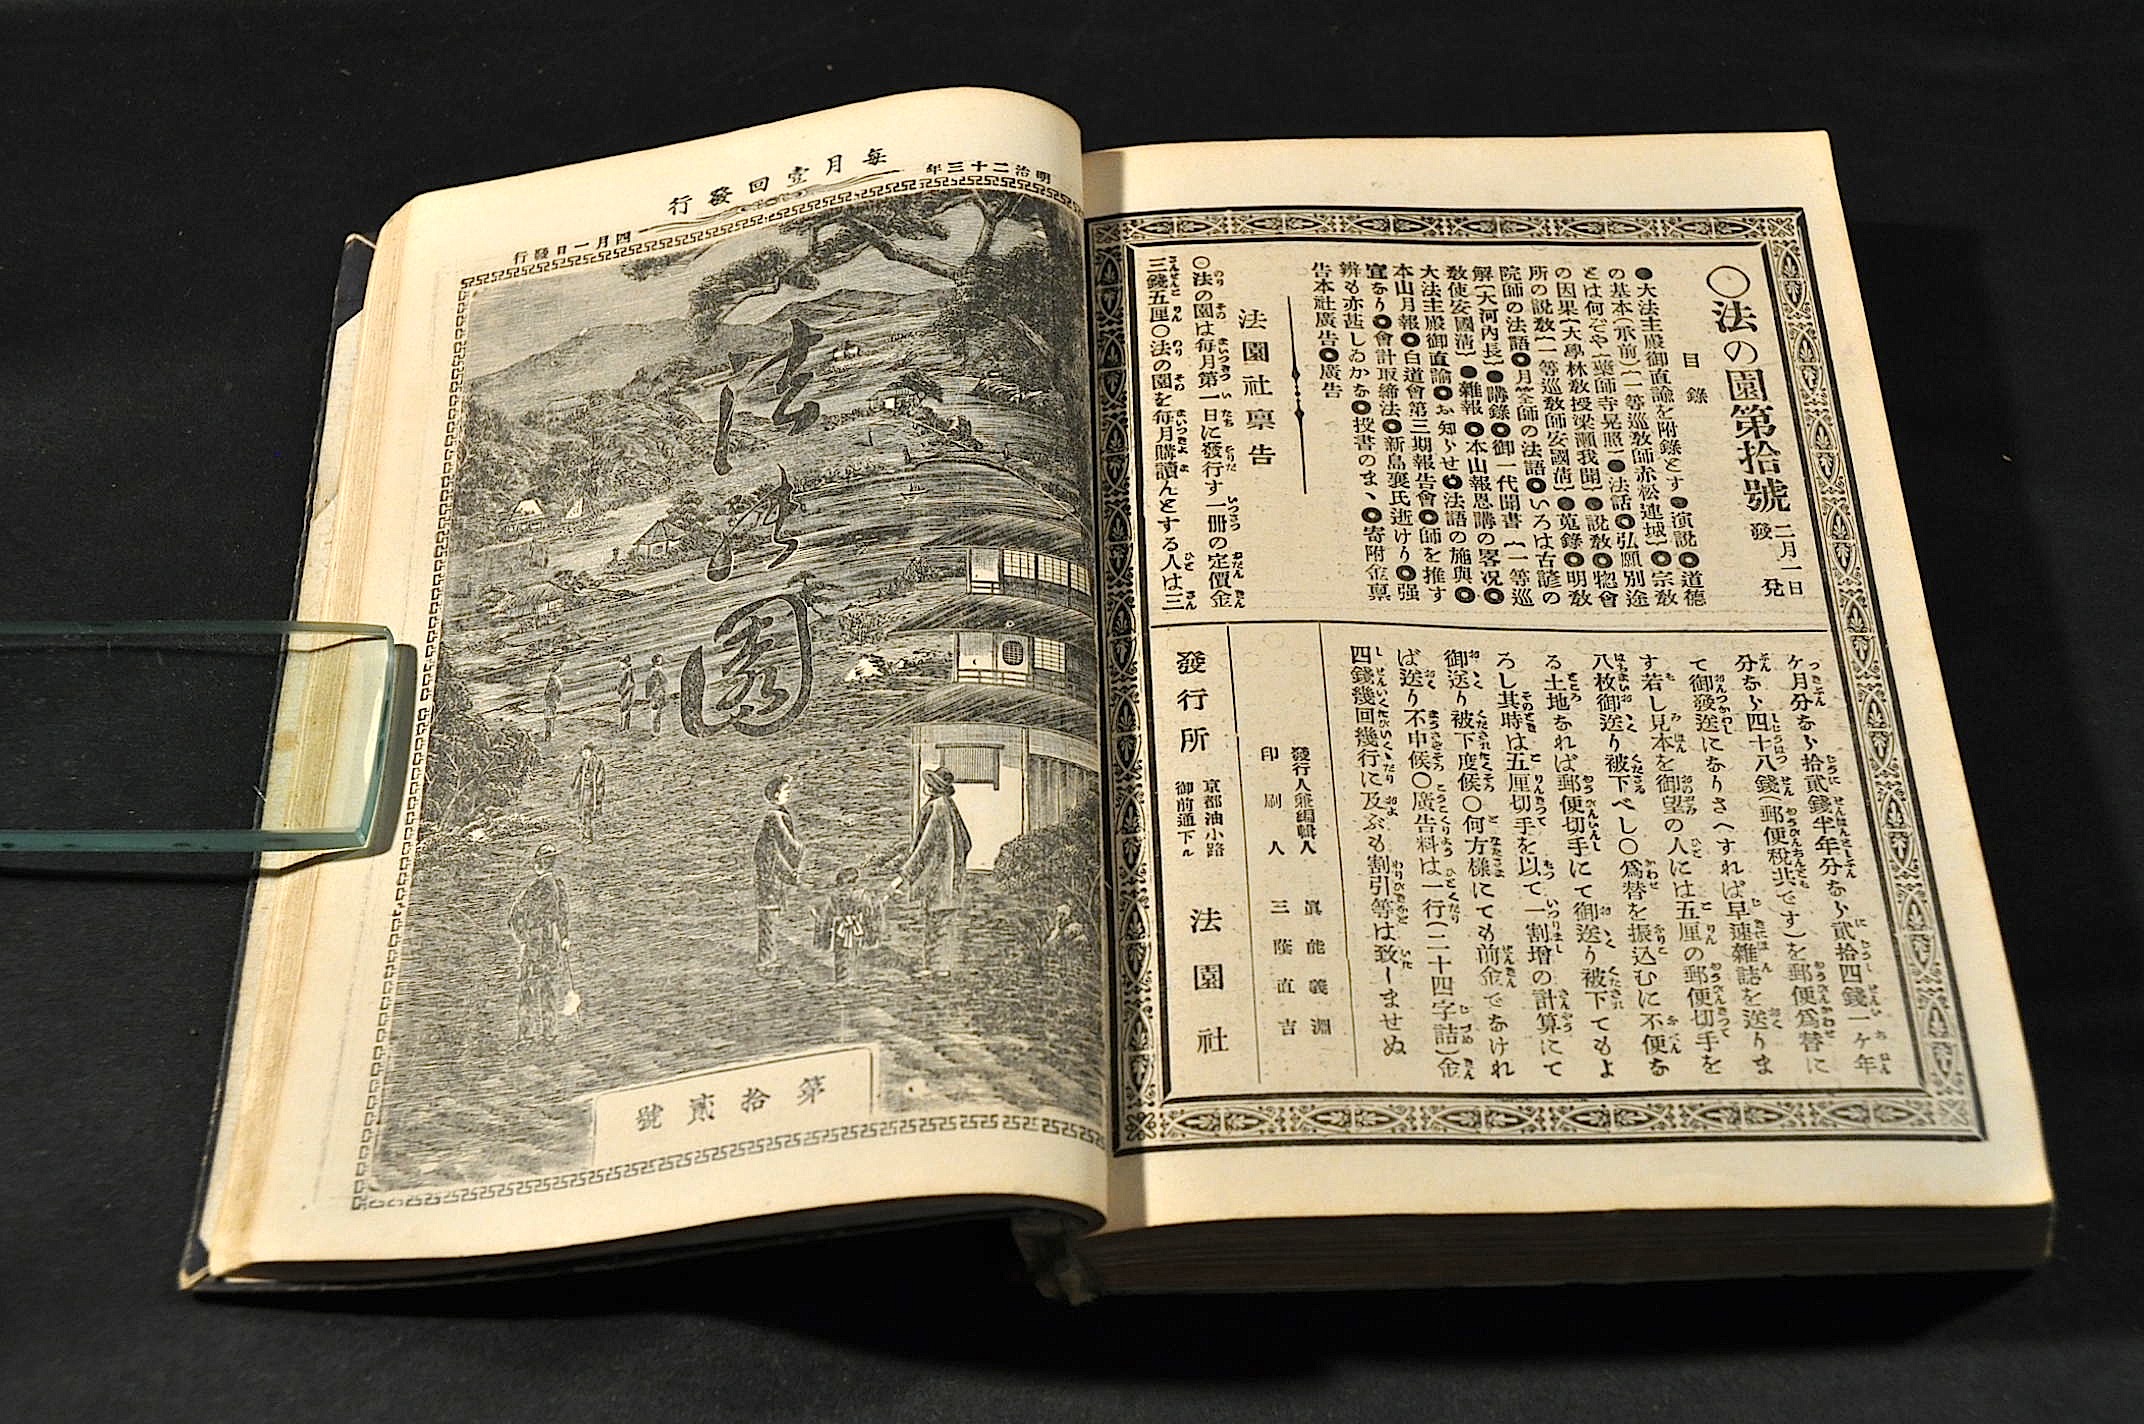 毎月壹回發行
明治二十三年
四月一日發行
法
の
園
第拾貳號
○法の園第拾號 二月一日發兌
目錄
●大法主殿御直諭を附錄とす●演說●道德
の基本(承前)(一等巡敎師赤松連城)○宗敎
とは何ぞや(藥師寺晃照)●法話●弘願別途
の因果(大學林敎授梁瀨我聞)●說敎●惣會
所の說敎(一等巡敎師安國淸)●蒐錄●明敎
院師の法語●月筌師の法語●いろは古諺の
解(大河內長)●講錄●御一代聞書(一等巡
敎使安國淸)●雜報●本山報恩講の畧况◎
大法主殿御直諭◎お知らせ◎法語の施與◎
本山月報◎白道會第三期報告會◎師を推す
宜なり◎會計取締法◎新島襄氏逝けり◎强
辨も亦甚しゐかな◎投書のまゝ◎寄附金稟
告本社廣告◎廣告
法園社稟告
○法の園は毎月第一日に發行す一冊の定價金
三錢五厘○法の園を毎月購讀んとする人は三
ケ月分なら拾貳錢半年分なら貳拾四錢一ケ年
分なら四十八錢(郵便稅共です)を郵便爲替に
て御發送になりさへすれば早速雜誌を送りま
す若し見本を御望の人には五厘の郵便切手を
八枚御送り被下べし○爲替を振込むに不便な
る土地なれば郵便切手にて御送り被下てもよ
ろし其時は五厘切手を以て一割增の計算にて
御送り被下度候○何方樣にても前金でなけれ
ば送り不申候○廣告料は一行(二十四字詰)金
四錢幾回幾行に及ぶも割引等は致しませぬ
發行人兼編輯人 眞能義淵
印刷人 三蔭直吉
發行所 京都油小路御前通下ル 法園社